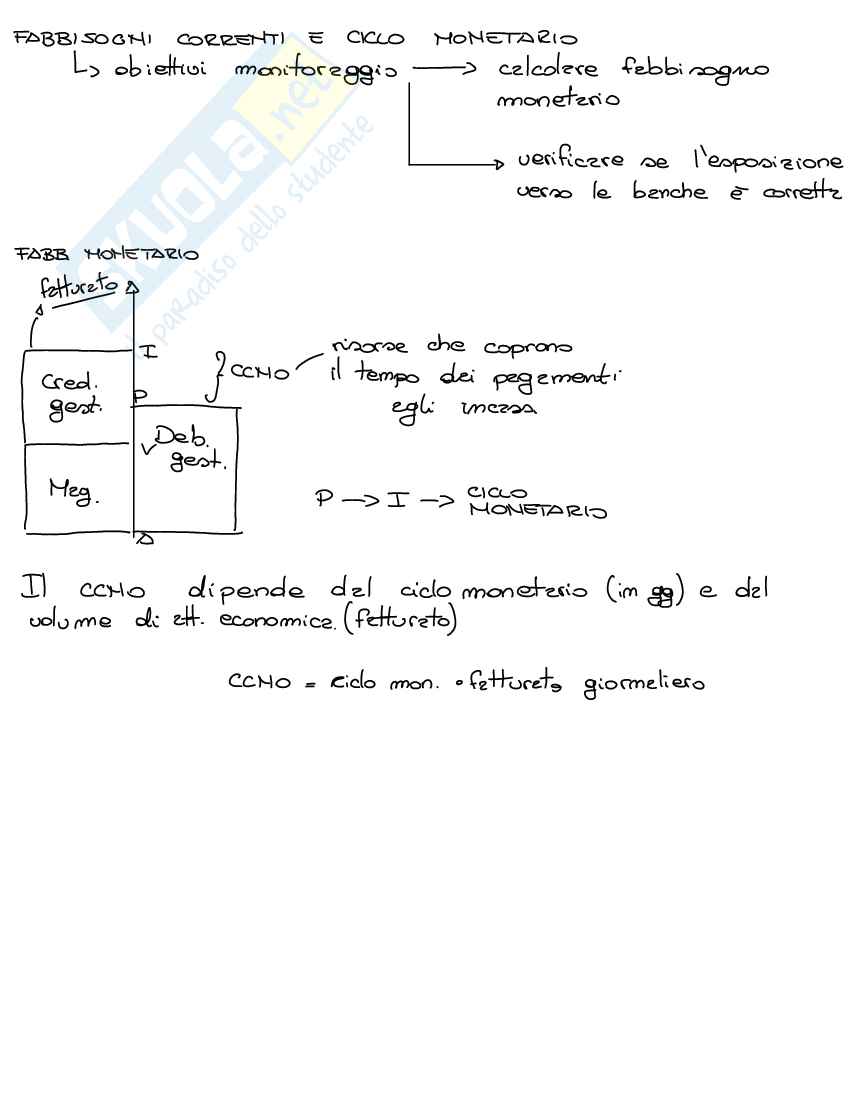 FABBISOGNI CORRENTI E CICLO MONETARIO
↳ obiettivi monitoraggio → calcolare fabbisogno
monetario
→ verificare se l'esposizione
verso le banche è corretta
SKUOLA.net
il paradiso dello studente
FABB MONETARIO
fatturato
I
Cred.
gest.
P
} CCNO
risorse che coprono
il tempo dei pagamenti
agli incassi
Deb.
gest.
Mag.
A
P → I → CICLO
MONETARIO
Il CCNO dipende dal ciclo monetario (in gg) e dal
volume di att. economica. (fatturato)
CCNO = ciclo mon. • fatturato giornaliero